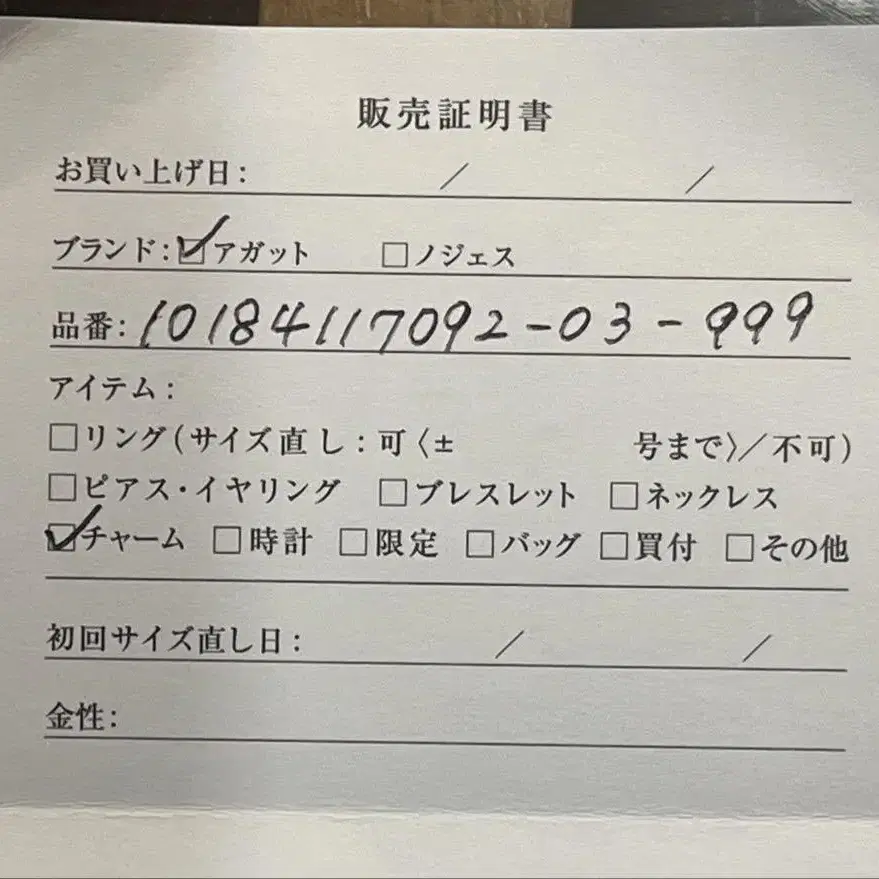 販売証明書
お買い上げ日: / /
ブランド: ☑アガット □ノジェス
品番: 10184117092-03-999
アイテム:
□リング(サイズ直し:可〈± 号まで〉/不可)
□ピアス・イヤリング □ブレスレット □ネックレス
☑チャーム □時計 □限定 □バッグ □買付 □その他
初回サイズ直し日: / /
金性: